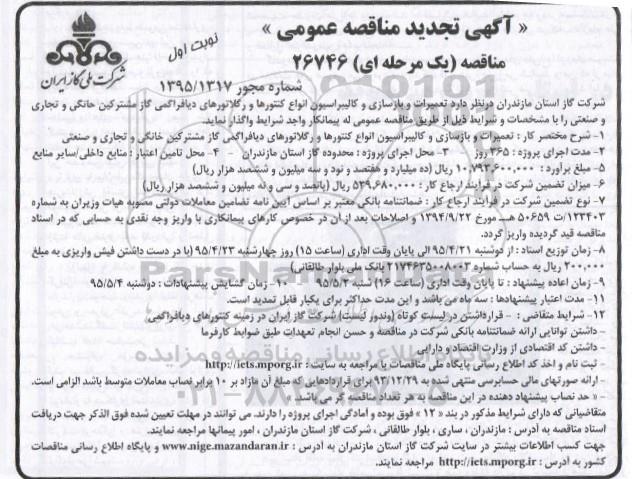 « آگهی تجدید مناقصه عمومی »
نوبت اول
مناقصه (یک مرحله ای) ۲۶۷۴۶
شرکت ملی گاز ایران
شماره مجوز ۱۳۹۵/۱۳۱۷
شرکت گاز استان مازندران درنظر دارد تعمیرات و بازسازی و کالیبراسیون انواع کنتورها و رگلاتورهای دیافراگمی گاز مشترکین خانگی و تجاری و صنعتی را با مشخصات و شرایط ذیل از طریق مناقصه عمومی له پیمانکار واجد شرایط واگذار نماید.
۱- شرح مختصر کار : تعمیرات و بازسازی و کالیبراسیون انواع کنتورها و رگلاتورهای دیافراگمی گاز مشترکین خانگی و تجاری و صنعتی
۲- مدت اجرای پروژه : ۳۶۵ روز ۳- محل اجرای پروژه : محدوده گاز استان مازندران - ۴- محل تامین اعتبار : منابع داخلی/سایر منابع
۵- مبلغ برآورد : ۱۰,۷۹۳,۶۰۰,۰۰۰ ریال (ده میلیارد و هفتصد و نود و سه میلیون و ششصد هزار ریال)
۶- میزان تضمین شرکت در فرآیند ارجاع کار : ۵۳۹,۶۸۰,۰۰۰ ریال (پانصد و سی و نه میلیون و ششصد هزار ریال)
۷- نوع تضمین شرکت در فرآیند ارجاع کار : ضمانتنامه بانکی معتبر بر اساس آیین نامه تضامین معاملات دولتی مصوبه هیات وزیران به شماره
۱۲۳۴۰۲/ت ۵۰۶۵۹ هـ مورخ ۱۳۹۴/۹/۲۲ و اصلاحات بعد از آن در خصوص کارهای پیمانکاری یا واریز وجه نقدی به حسابی که در اسناد
مناقصه قید گردیده واریز گردد.
۸- زمان توزیع اسناد : از دوشنبه ۹۵/۴/۲۱ الی پایان وقت اداری (ساعت ۱۵) روز چهارشنبه ۹۵/۴/۲۳ (با در دست داشتن فیش واریزی به مبلغ
۲۰۰,۰۰۰ ریال به حساب شماره ۲۱۷۴۶۳۵۰۰۸۰۰۳ بانک ملی بلوار طالقانی)
۹- زمان اعاده پیشنهاد : تا پایان وقت اداری (ساعت ۱۶) شنبه ۹۵/۵/۲ ۱۰- زمان گشایش پیشنهادات : دوشنبه ۹۵/۵/۴
۱۱- مدت اعتبار پیشنهادها : سه ماه می باشد و این مدت حداکثر برای یکبار قابل تمدید است.
۱۲- شرایط متقاضی : - قرارداشتن در لیست کوتاه (وندور لیست) شرکت گاز ایران در زمینه کنتورهای دیافراگمی
- داشتن توانایی ارائه ضمانتنامه بانکی شرکت در مناقصه و حسن انجام تعهدات طبق ضوابط کارفرما
- داشتن کد اقتصادی از وزارت اقتصاد و دارایی
- ثبت نام و اخذ کد اطلاع رسانی پایگاه ملی مناقصات با مراجعه به سایت : http://iets.mporg.ir
- ارائه صورتهای مالی حسابرسی منتهی شده به ۹۳/۱۲/۲۹ برای قراردادهایی که مبلغ آن مازاد بر ۱۰ برابر نصاب معاملات متوسط باشد الزامی است.
- « حد نصاب پیشنهاد دهنده در این مناقصه به هر تعداد مناقصه گر می باشد. »
متقاضیانی که دارای شرایط مذکور در بند « ۱۲ » فوق بوده و آمادگی اجرای پروژه را دارند. می توانند در مهلت تعیین شده فوق الذکر جهت دریافت
اسناد مناقصه به آدرس : مازندران ، ساری ، بلوار طالقانی ، شرکت گاز استان مازندران ، امور پیمانها مراجعه نمایند.
جهت کسب اطلاعات بیشتر در سایت شرکت گاز استان مازندران به آدرس : www.nige.mazandaran.ir و پایگاه اطلاع رسانی مناقصات
کشور به آدرس : http://iets.mporg.ir مراجعه نمایند.